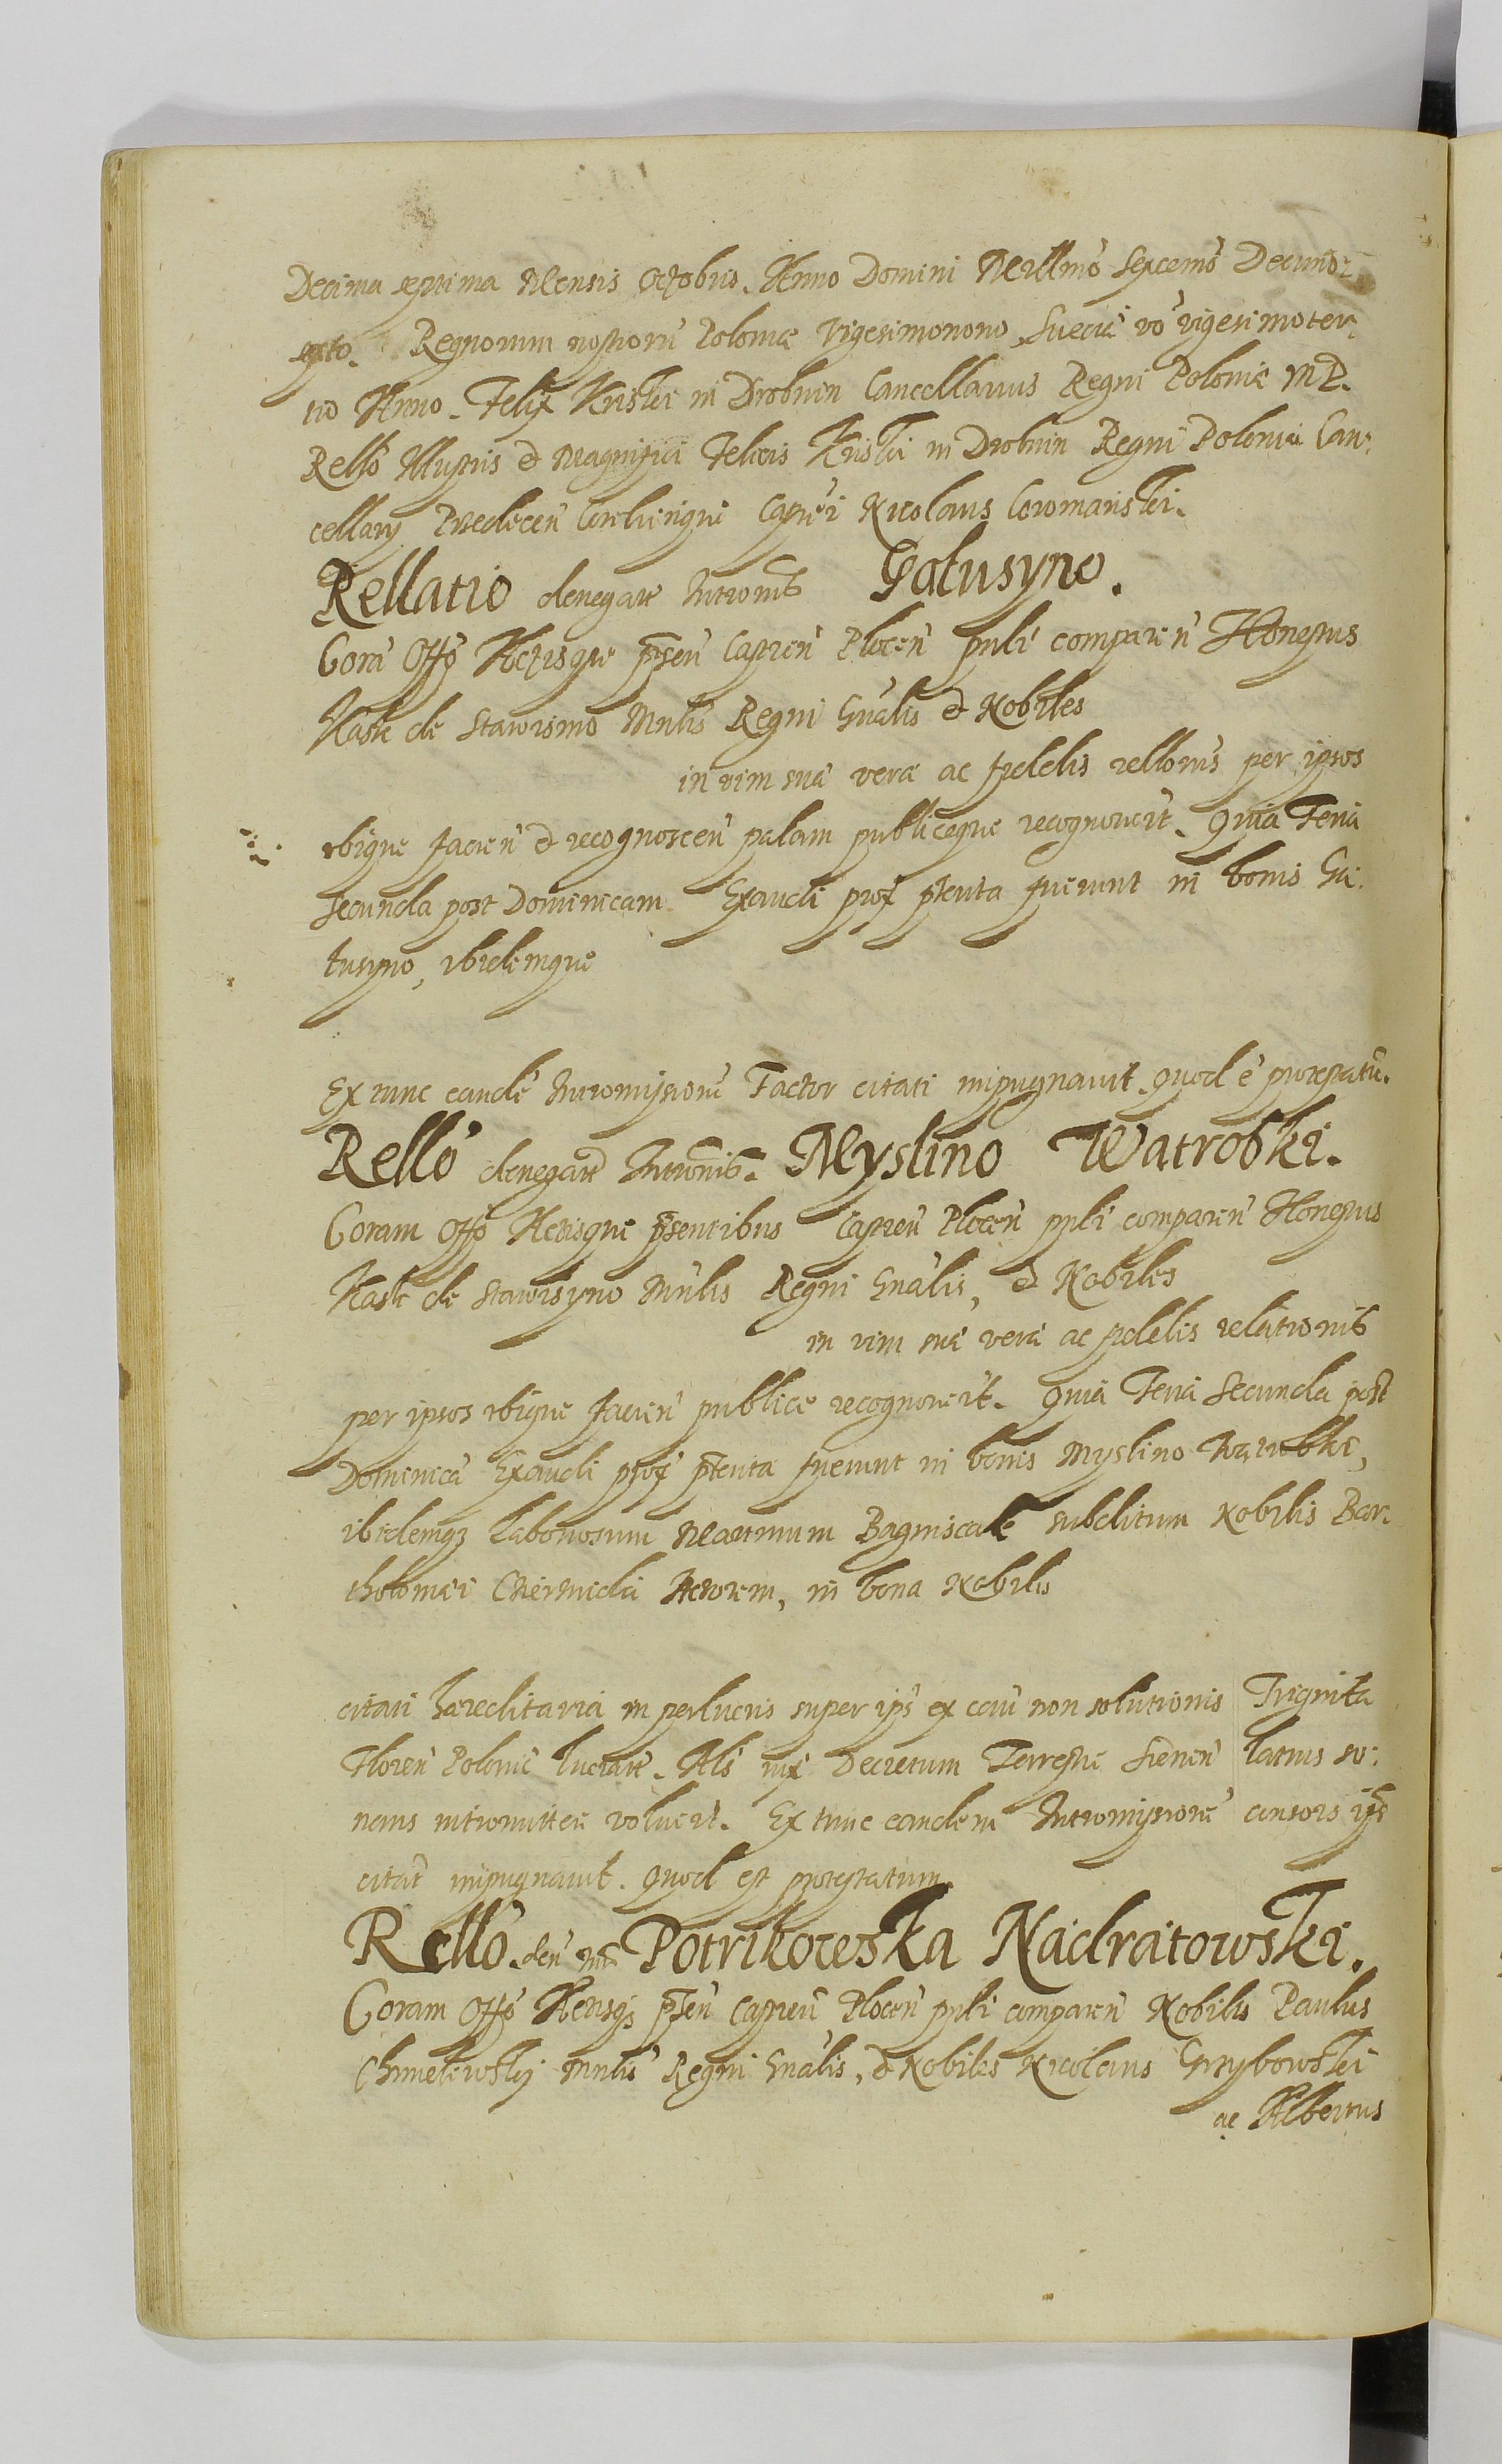 Decima septima Mensis Octobris. Anno Domini Millmo Sexcemo Decimo
sexto. Regnorum nostrorũ Poloniæ Vigesimonono Sueciæ vo vigesimoter,
tio Anno. Felix Kriski in Drobnin Cancellarius Regni Poloniæ M P.
Rello Illustris et Magnifici Felicis Kriski in Drobnin Regni Poloniæ Can,
cellarij Capnei Nicolaus Coromanski.
Rellatio denegatæ Intromis Galusyno.
Corã Offo Actisque pñsen Capten Plocen psnli comparen Honestus
Kask de Stawismo Mnlis Regni Gnalis et Nobiles
in vim suæ veræ ac fidelis rellonis per ipsos
ibique facien et recognoscen palam publiceque recognoverũt. Quia Feria
Secunda post Dominicam Exaudi prox ptenta fuerunt in bonis Ga,
tusyno, ibidemque
Ex tunc eandẽ Intromissionẽ Factor citati impugnavit. Quod ẽ protestatũ.
Rello denegatæ Intromis. Myslino Watrobki.
Coram Offo Actisque pñsentibus Capten Plocen psnli comparen Honestus
Kask de Stawisyno Mnlis Regni Gnalis, et Nobiles
in vim suæ veræ ac fidelis relationis
per ipsos ibique facien publice recognoverũt. Quia Feria Secunda post
Dominicã Exaudi prox ptenta fuerunt in bonis Myslino Watrobki,
ibidemq3 Laboriosum Martinum Bagniscak subditum Nobilis Bar,
tholomæi Actorem, in bona Nobilis
citati hæreditaria in perlucris super ips ex non solutionis Triginta
Floren Poloniæ lucratæ. Als iux Decretum Terrestre latius so,
nans intromittere voluerũt. Ex tunc eandem Intromissionẽ consors ips
citati impugnavit. Quod est protestatum.
Rello. den Int Potrikowska Nadratowski.
Coram Offo Actisq3 pñsen Capten Plocen psnli comparen Nobilis Paulus
Chmeliewskij Mnlis Regni Gnalis, et Nobiles Nicolaus Grzybowski
ac Albertus